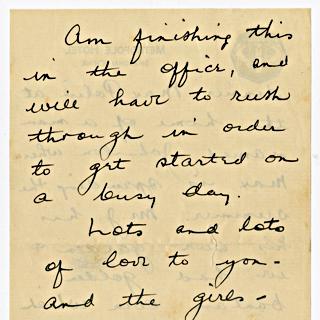 Am finishing this
in the office, and
will have to rush
through in order
to get started on
a busy day.
Lots and lots
of love to you -
and the girls -